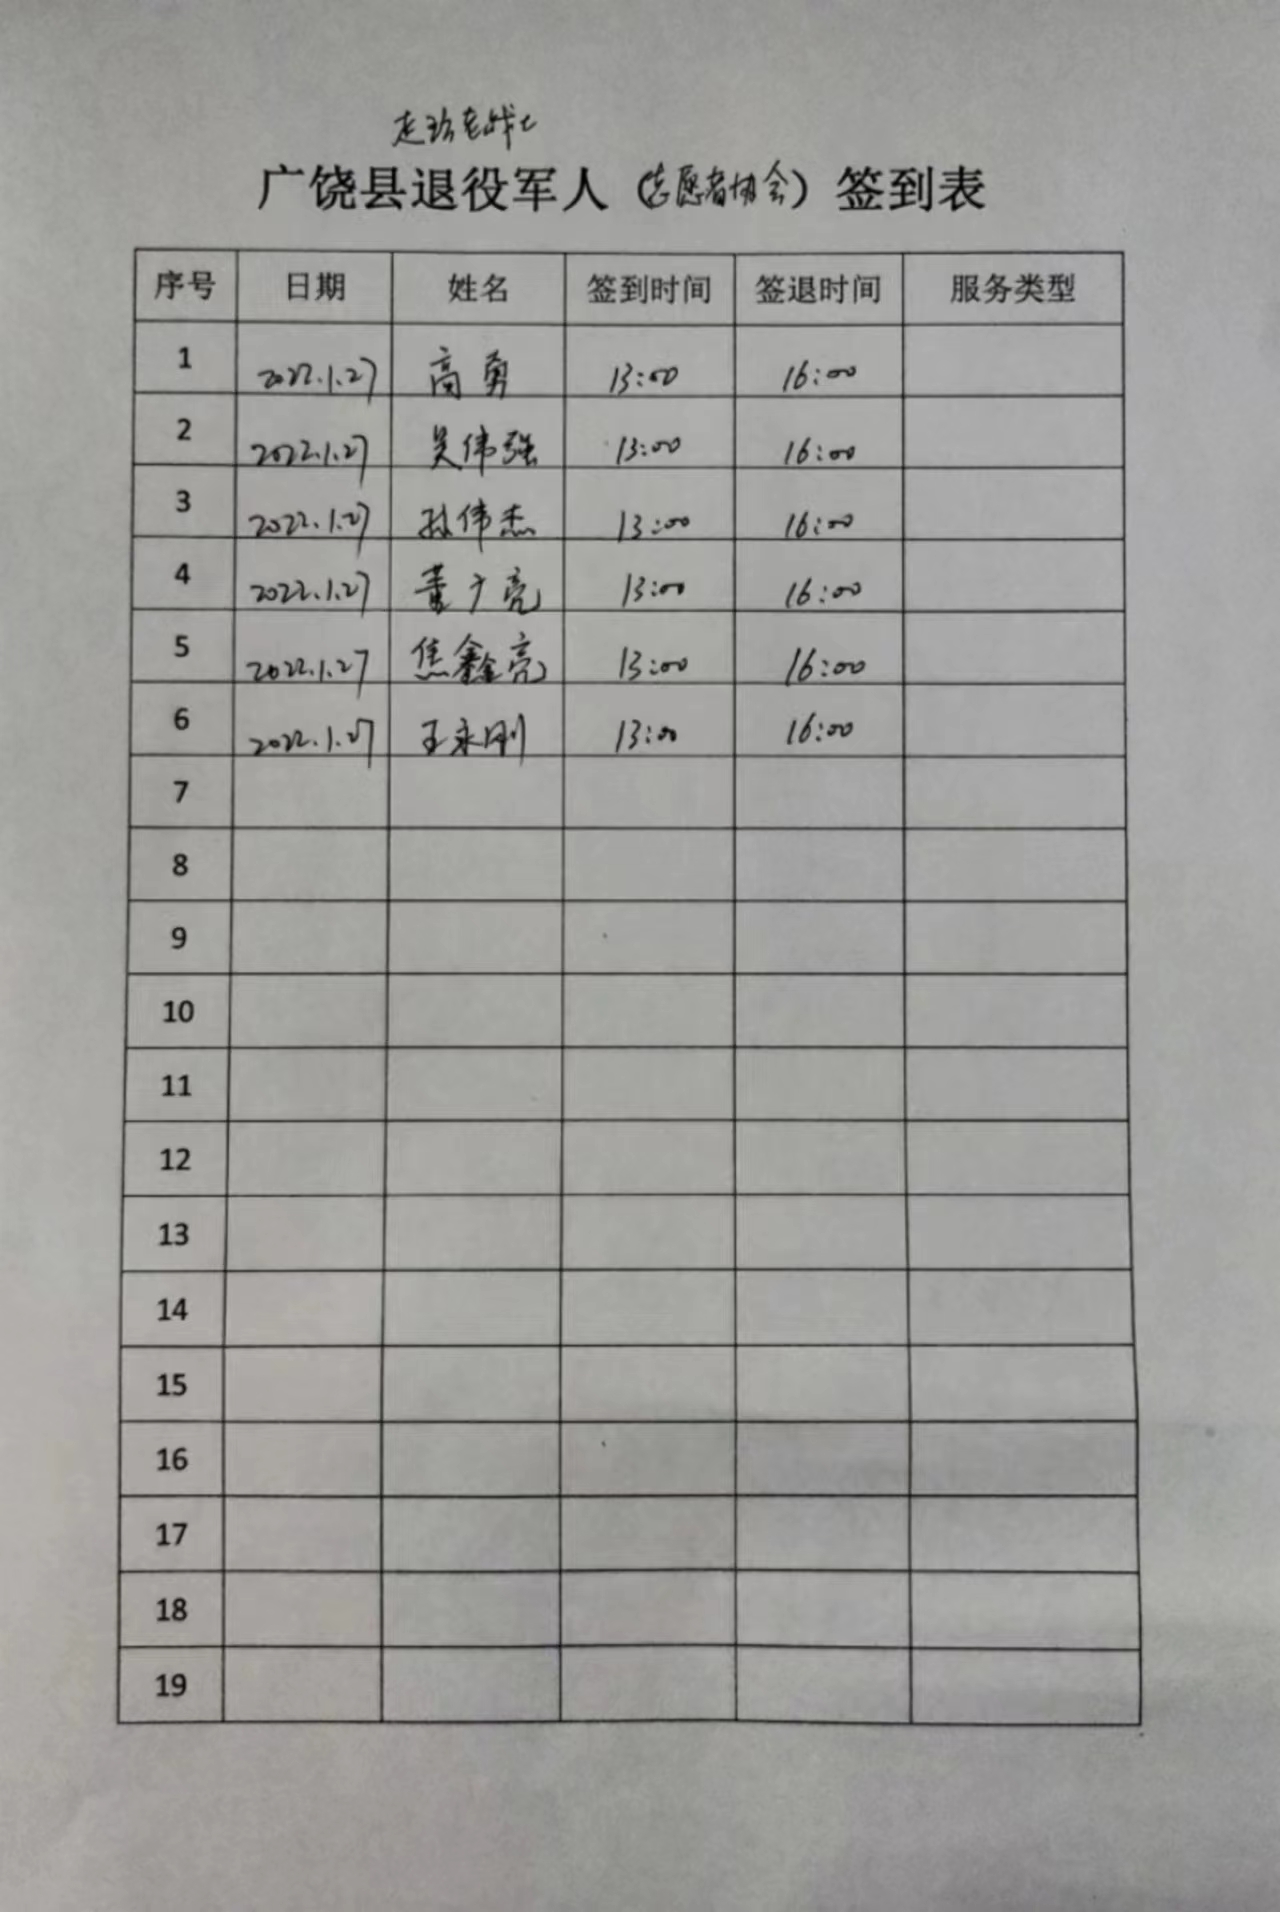 走访老战士
广饶县退役军人（志愿者协会）签到表
序号 日期 姓名 签到时间 签退时间 服务类型
1 2022.1.27 高勇 13:00 16:00
2 2022.1.27 吴伟强 13:00 16:00
3 2022.1.27 孙伟杰 13:00 16:00
4 2022.1.27 董广亮 13:00 16:00
5 2022.1.27 焦鑫亮 13:00 16:00
6 2022.1.27 王永刚 13:00 16:00
7
8
9
10
11
12
13
14
15
16
17
18
19